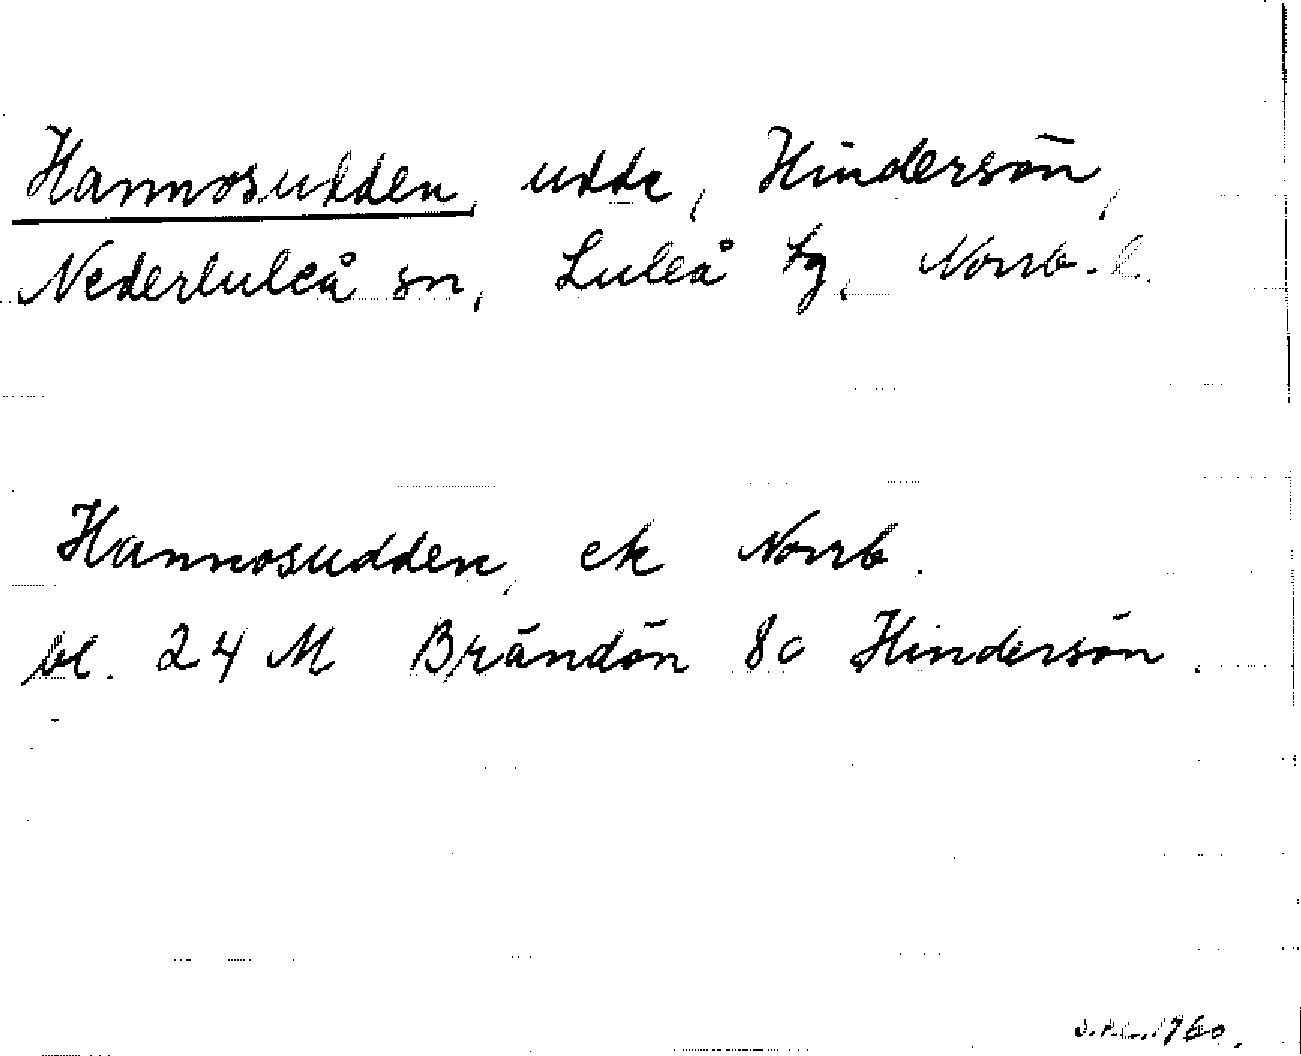 Hannosudden, udde, Hindersön,
Nederluleå sn, Luleå tg, Norrb. l.
Hannosudden, ek Norrb.
bl. 24 M Brändön 8c Hindersön.
1960.